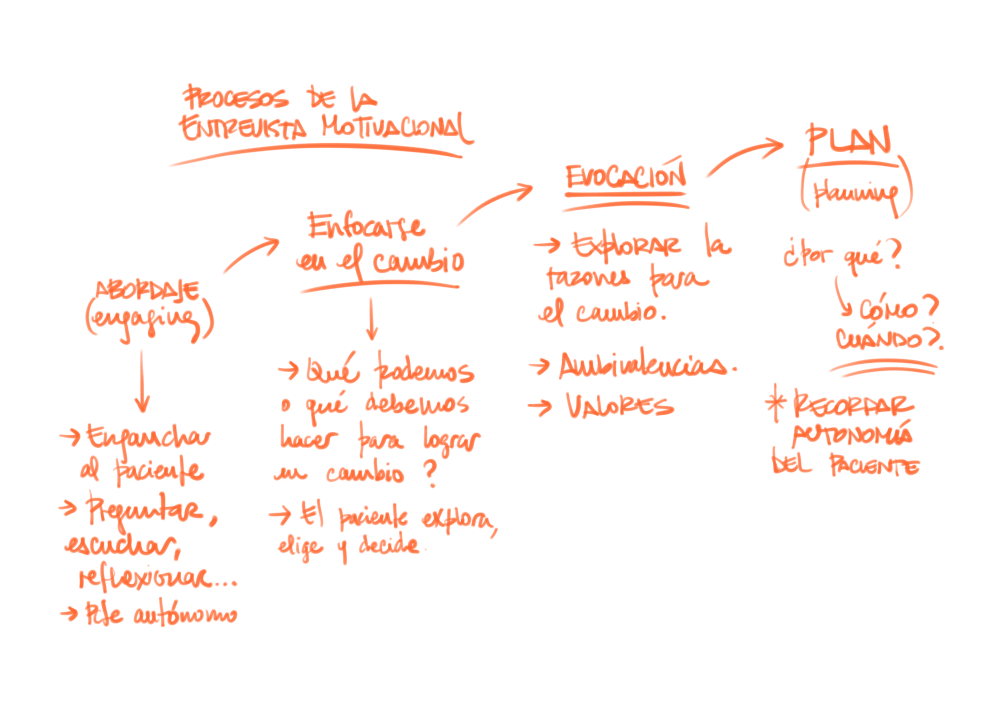 PROCESOS DE LA
ENTREVISTA MOTIVACIONAL
ABORDAJE
(engaging)
→ Enganchar
al paciente
→ Preguntar,
escuchar,
reflexionar...
→ Pte autónomo
Enfocarse
en el cambio
→ Qué podemos
o qué debemos
hacer para lograr
un cambio?
→ El paciente explora,
elige y decide.
EVOCACIÓN
→ EXPLORAR la
razones para
el cambio.
→ Ambivalencias.
→ VALORES
PLAN
(planning)
¿Por qué?
CÓMO?
CUÁNDO?.
* RECORDAR
AUTONOMÍA
DEL PACIENTE